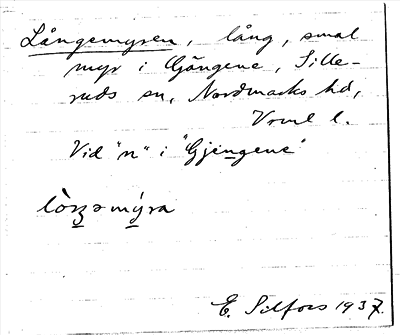 Långemyren, lång, smal
myr i Gängene, Sille-
ruds sn, Nordmarks hd,
Vrml l.
Vid "n" i "Gjengene"
E. Silfors 1937.